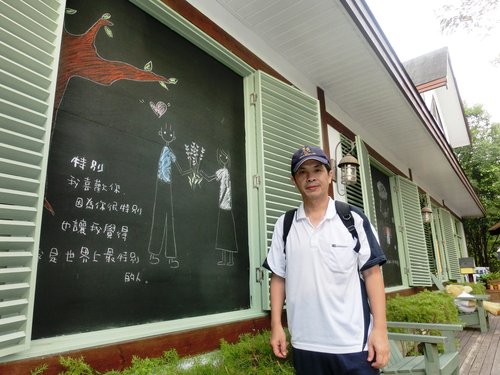 特別
我喜歡你
因為你很特別
也讓我覺得
我是世界上最特別
的人。